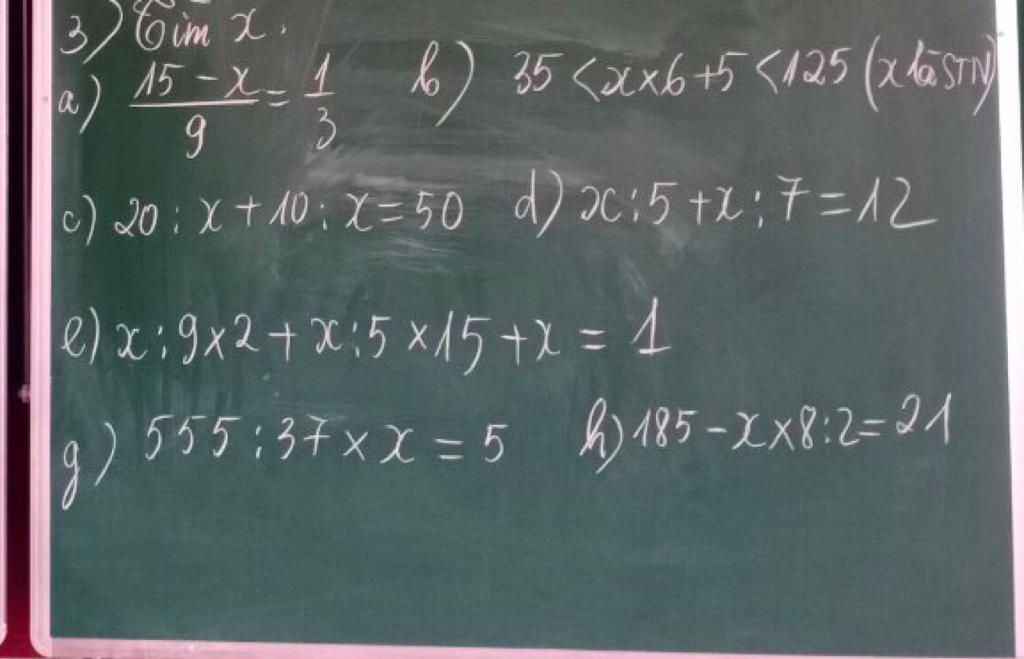 3) Tìm x.
a) \frac{15 - x}{9} = \frac{1}{3} b) 35 < x × 6 + 5 < 125 (x là STN)
c) 20 : x + 10 : x = 50 d) x : 5 + x : 7 = 12
e) x : 9 × 2 + x : 5 × 15 + x = 1
g) 555 : 37 × x = 5 h) 185 - x × 8 : 2 = 21